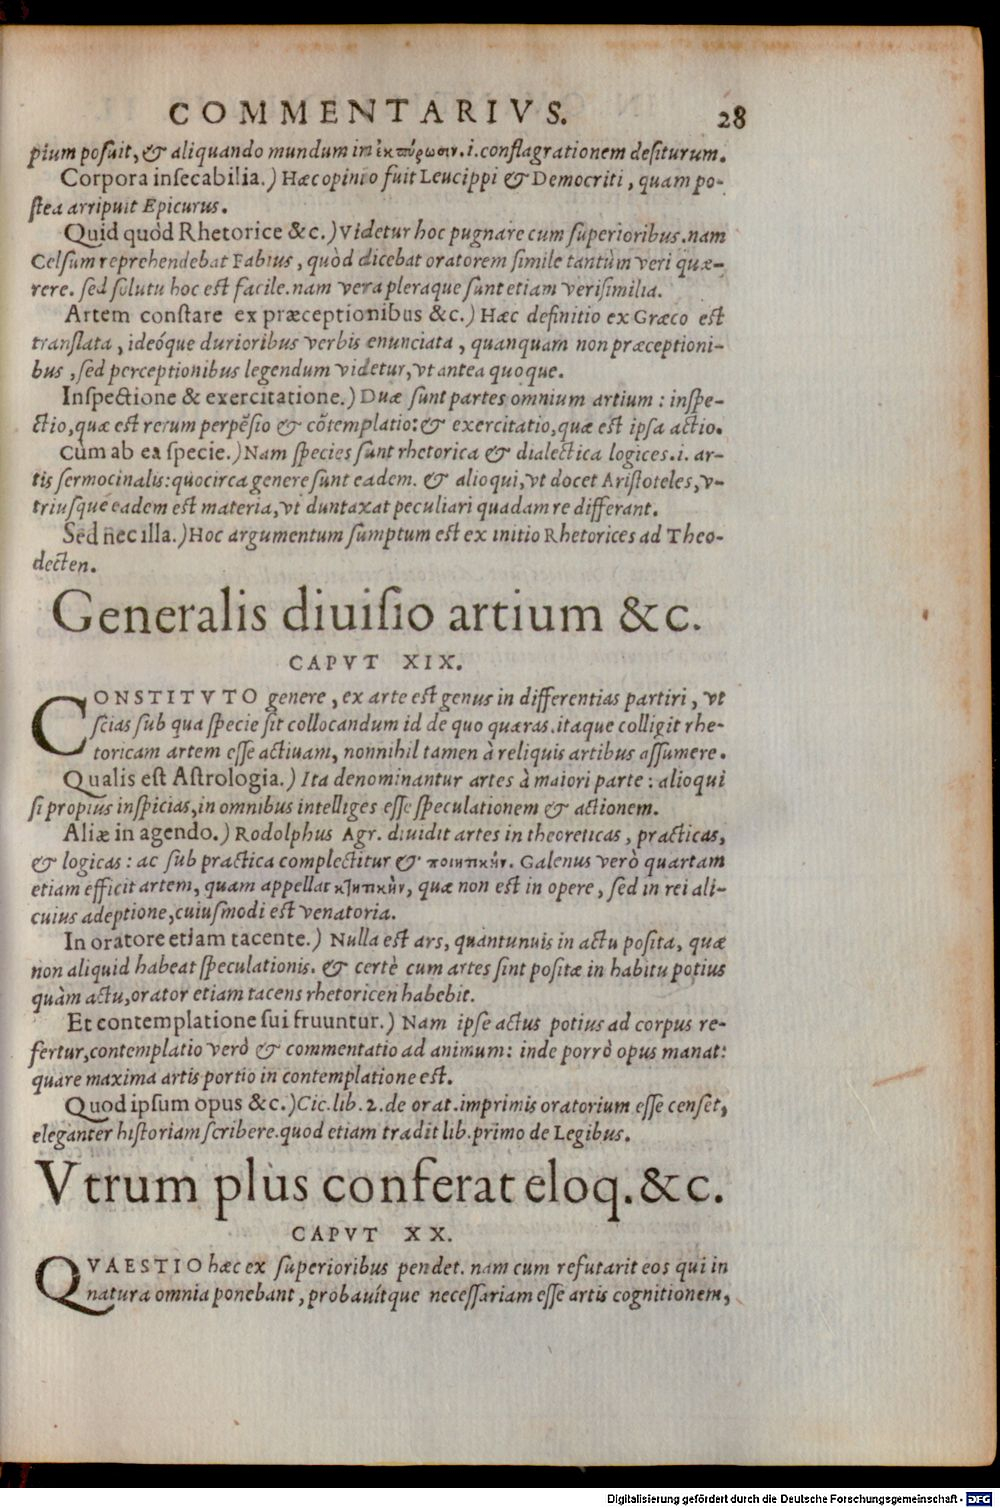 COMMENTARIVS. 28
pium posuit, & aliquando mundum in ἐκπύρωσιν. i. conflagrationem desiturum.
Corpora insecabilia.) Hæc opinio fuit Leucippi & Democriti, quam po-
stea arripuit Epicurus.
Quid quòd Rhetorice &c.) Videtur hoc pugnare cum superioribus. nam
Celsum reprehendebat Fabius, quòd dicebat oratorem simile tantùm veri quæ-
rere. sed solutu hoc est facile. nam vera pleraque sunt etiam verisimilia.
Artem constare ex præceptionibus &c.) Hæc definitio ex Græco est
translata, ideóque durioribus verbis enunciata, quanquam non præceptioni-
bus, sed perceptionibus legendum videtur, vt antea quoque.
Inspectione & exercitatione.) Duæ sunt partes omnium artium: inspe-
ctio, quæ est rerum perpẽsio & cõtemplatio: & exercitatio, quæ est ipsa actio.
Cùm ab ea specie.) Nam species sunt rhetorica & dialectica logices. i. ar-
tis sermocinalis: quocirca genere sunt eadem. & alioqui, vt docet Aristoteles, v-
triusque eadem est materia, vt duntaxat peculiari quadam re differant.
Sed nec illa.) Hoc argumentum sumptum est ex initio Rhetorices ad Theo-
decten.
Generalis diuisio artium &c.
CAPVT XIX.
CONSTITVTO genere, ex arte est genus in differentias partiri, vt
scias sub qua specie sit collocandum id de quo quæras. itaque colligit rhe-
toricam artem esse actiuam, nonnihil tamen à reliquis artibus assumere.
Qualis est Astrologia.) Ita denominantur artes à maiori parte: alioqui
si propius inspicias, in omnibus intelliges esse speculationem & actionem.
Aliæ in agendo.) Rodolphus Agr. diuidit artes in theoreticas, practicas,
& logicas: ac sub practica complectitur & ποιητικήν. Galenus verò quartam
etiam efficit artem, quam appellat κτητικήν, quæ non est in opere, sed in rei ali-
cuius adeptione, cuiusmodi est venatoria.
In oratore etiam tacente.) Nulla est ars, quantunuis in actu posita, quæ
non aliquid habeat speculationis. & certè cum artes sint positæ in habitu potius
quàm actu, orator etiam tacens rhetoricen habebit.
Et contemplatione sui fruuntur.) Nam ipse actus potius ad corpus re-
fertur, contemplatio verò & commentatio ad animum: inde porrò opus manat:
quare maxima artis portio in contemplatione est.
Quod ipsum opus &c.) Cic. lib. 2. de orat. imprimis oratorium esse censet,
eleganter historiam scribere. quod etiam tradit lib. primo de Legibus.
Vtrum plus conferat eloq. &c.
CAPVT XX.
QVAESTIO hæc ex superioribus pendet. nam cum refutarit eos qui in
natura omnia ponebant, probauítque necessariam esse artis cognitionem,
Digitalisierung gefördert durch die Deutsche Forschungsgemeinschaft - DFG